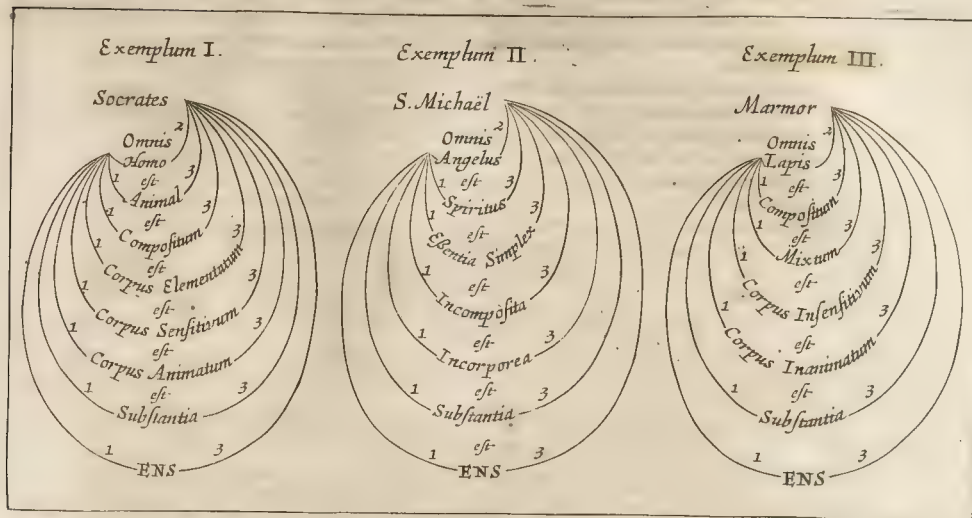 Exemplum I.
Socrates
2
Omnis
Homo
1 est 3
Animal
1 est 3
Compositum
1 est 3
Corpus Elementatum
1 est 3
Corpus Sensitivum
1 est 3
Corpus Animatum
1 est 3
Substantia
1 3
ENS
Exemplum II.
S. Michaël
2
Omnis
Angelus
1 est 3
Spiritus
1 est 3
Eßentia Simplex
1 est 3
Incomposita
1 est 3
Incorporea
1 est 3
Substantia
1 est 3
ENS
Exemplum III.
Marmor
2
Omnis
Lapis
1 est 3
Compositum
1 est 3
Mixtum
1 est 3
Corpus Insensitivum
1 est 3
Corpus Inanimatum
1 est 3
Substantia
1 3
ENS